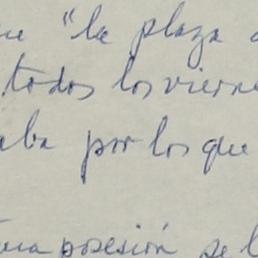 "la plaza
todos los vierne
aba por los que
posesión se